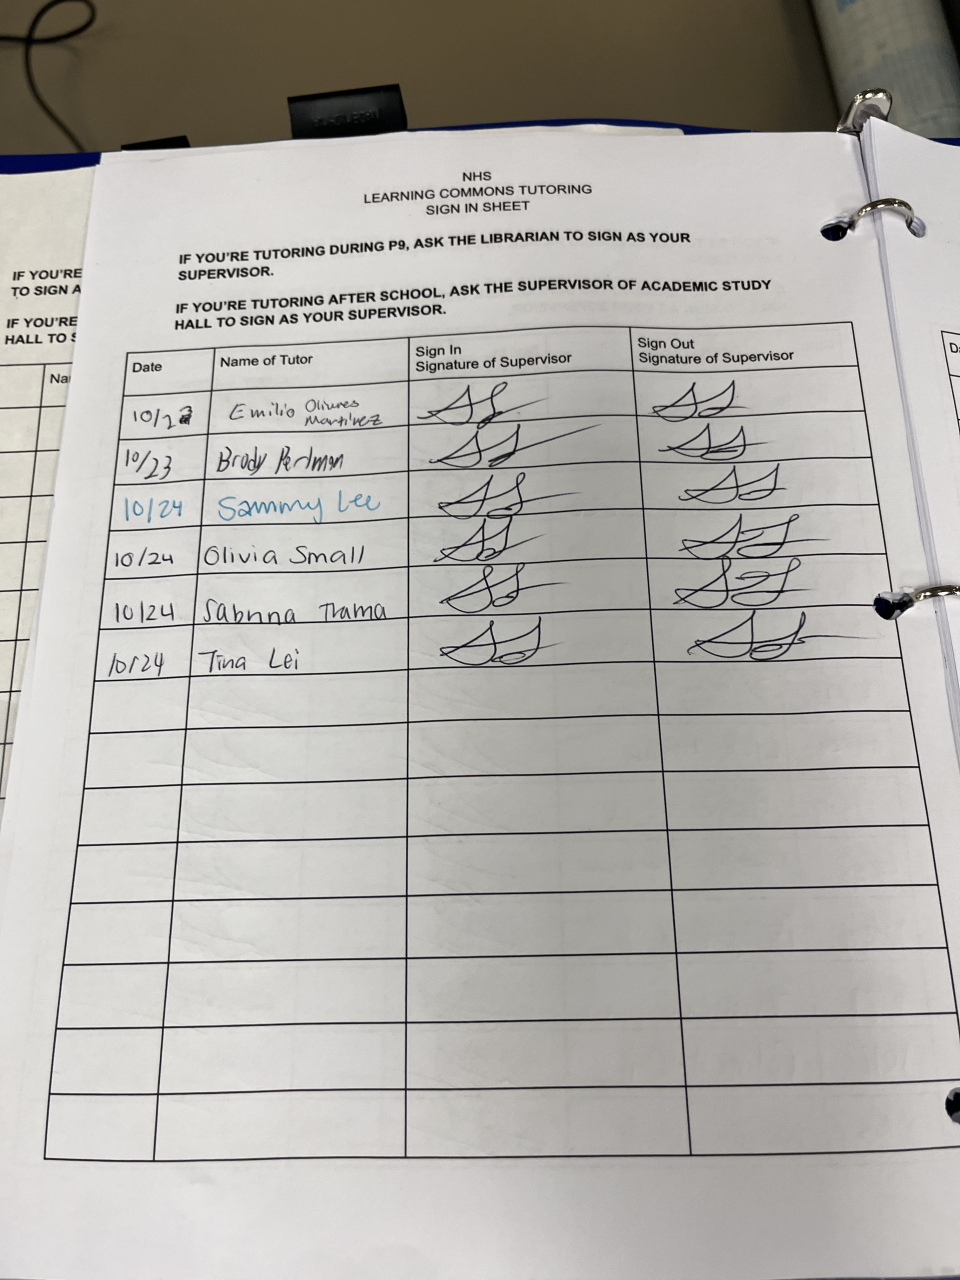 NHS
LEARNING COMMONS TUTORING
SIGN IN SHEET
IF YOU'RE TUTORING DURING P9, ASK THE LIBRARIAN TO SIGN AS YOUR
SUPERVISOR.
IF YOU'RE TUTORING AFTER SCHOOL, ASK THE SUPERVISOR OF ACADEMIC STUDY
HALL TO SIGN AS YOUR SUPERVISOR.
Date Name of Tutor Sign In Signature of Supervisor Sign Out Signature of Supervisor
Emilio Olivares Martinez
10/23 Brody Perlman
10/24 Sammy Lee
10/24 Olivia Small
10/24 Sabrina Thama
10/24 Tina Lei
IF YOU'RE
TO SIGN A
IF YOU'RE
HALL TO S
Na
D